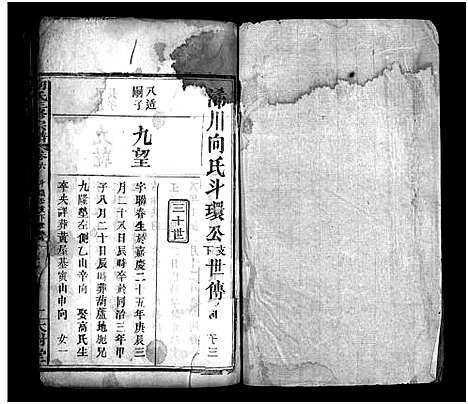 浠川向氏斗環公支下世傳
三十世
八适嗣子
九望
字聯春生於嘉慶二十五年庚辰三
月二十八日辰時卒於同治三年甲
子八月二十日辰時葬葫蘆地毗兄
九隆塋左側乙山辛向 娶高氏生
卒失詳葬黃屋基寅山申向 女一